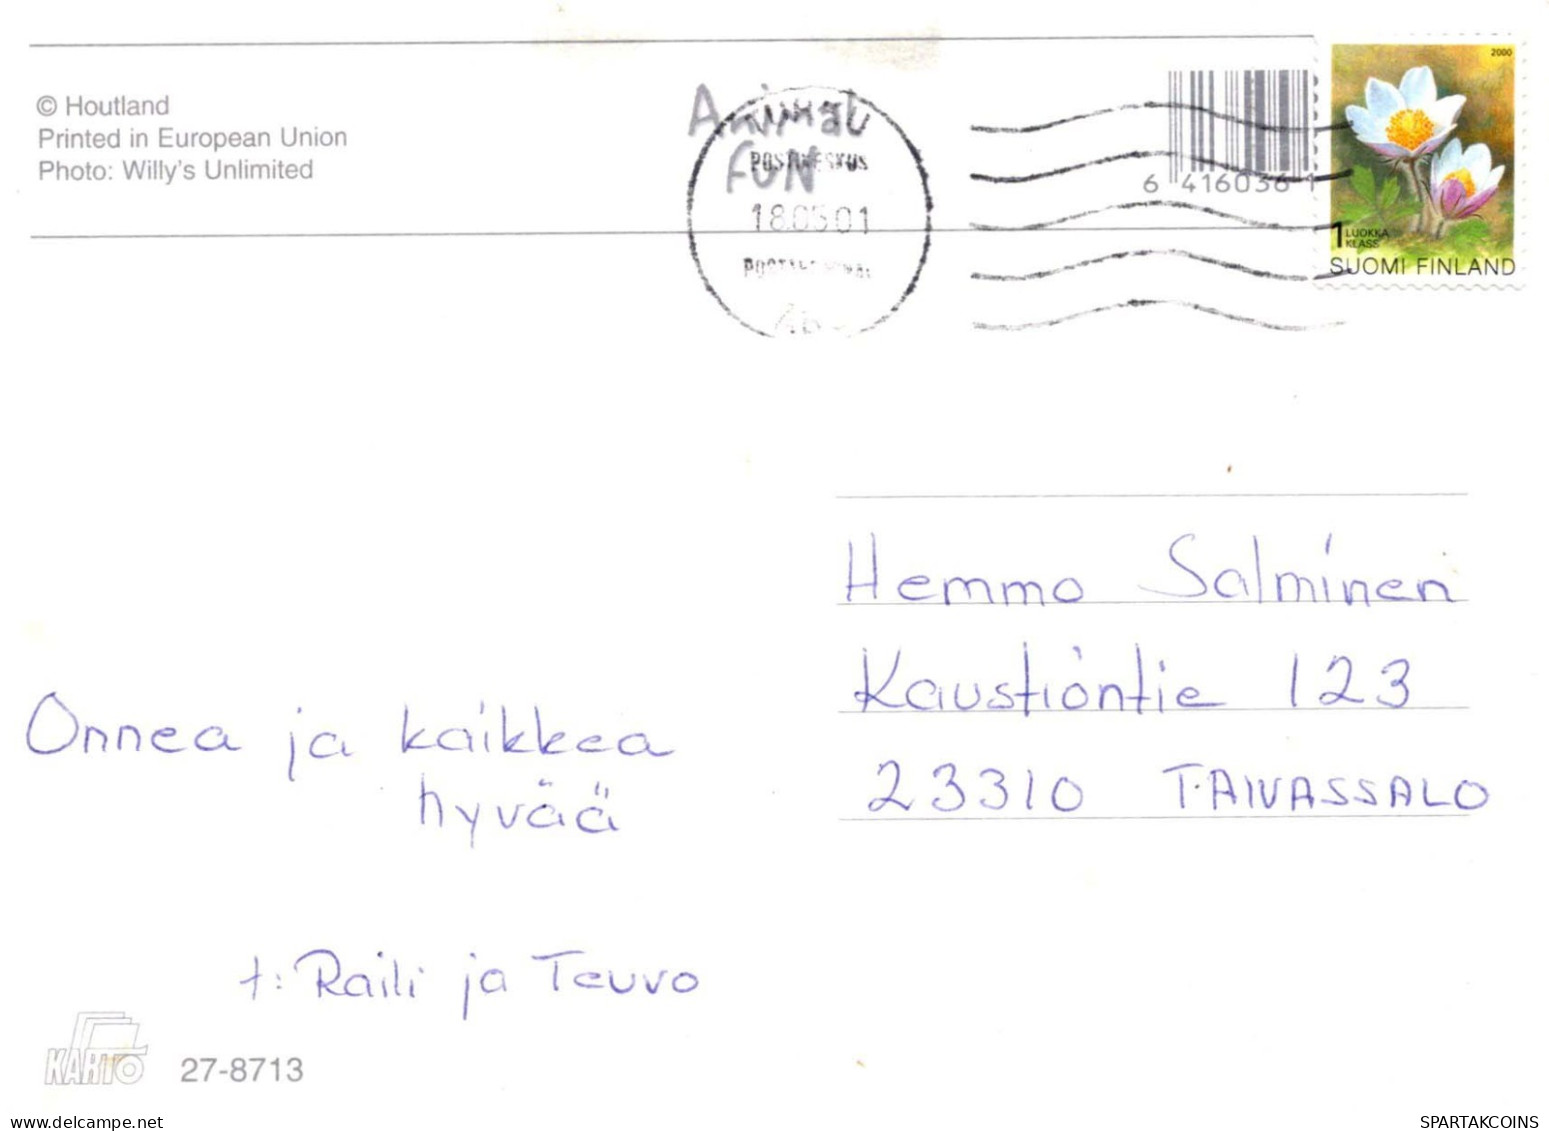 © Houtland
Printed in European Union
Photo: Willy's Unlimited
Animal
FUN
POSTIKESKUS
18.05.01
6 416036 1
2000
1 LUOKKA
KLASS
SUOMI FINLAND
Hemmo Salminen
Kaustiontie 123
23310 TAIVASSALO
Onnea ja kaikkea
hyvää
t: Raili ja Teuvo
KARTO 27-8713
www.delcampe.net
SPARTAKCOINS